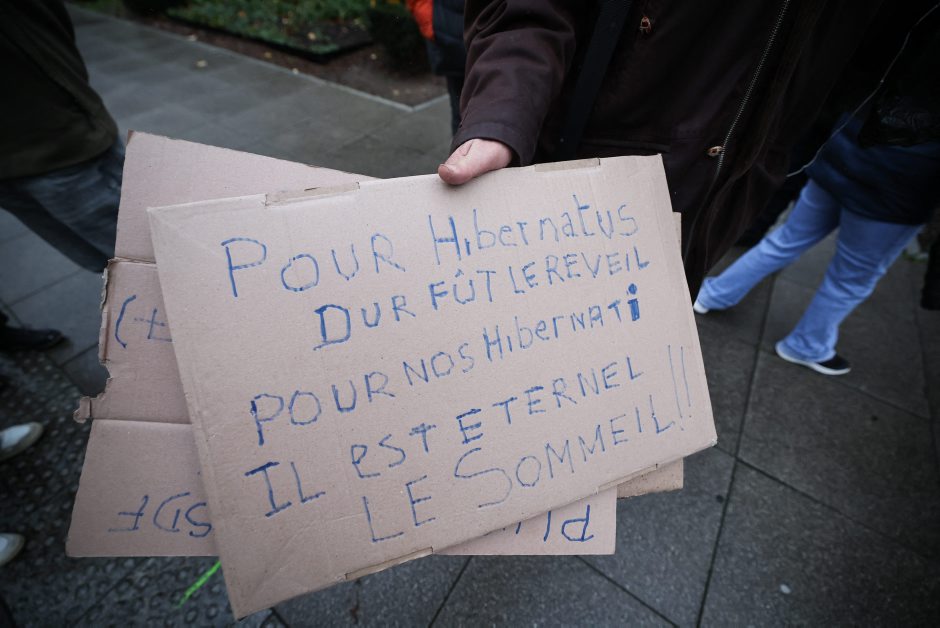 POUR HibernatUS
DUR FÛT LE REVEIL
POUR NOS HibernATi
IL EST ETERNEL
LE SOMMEIL!!
(+
SDF
PLU